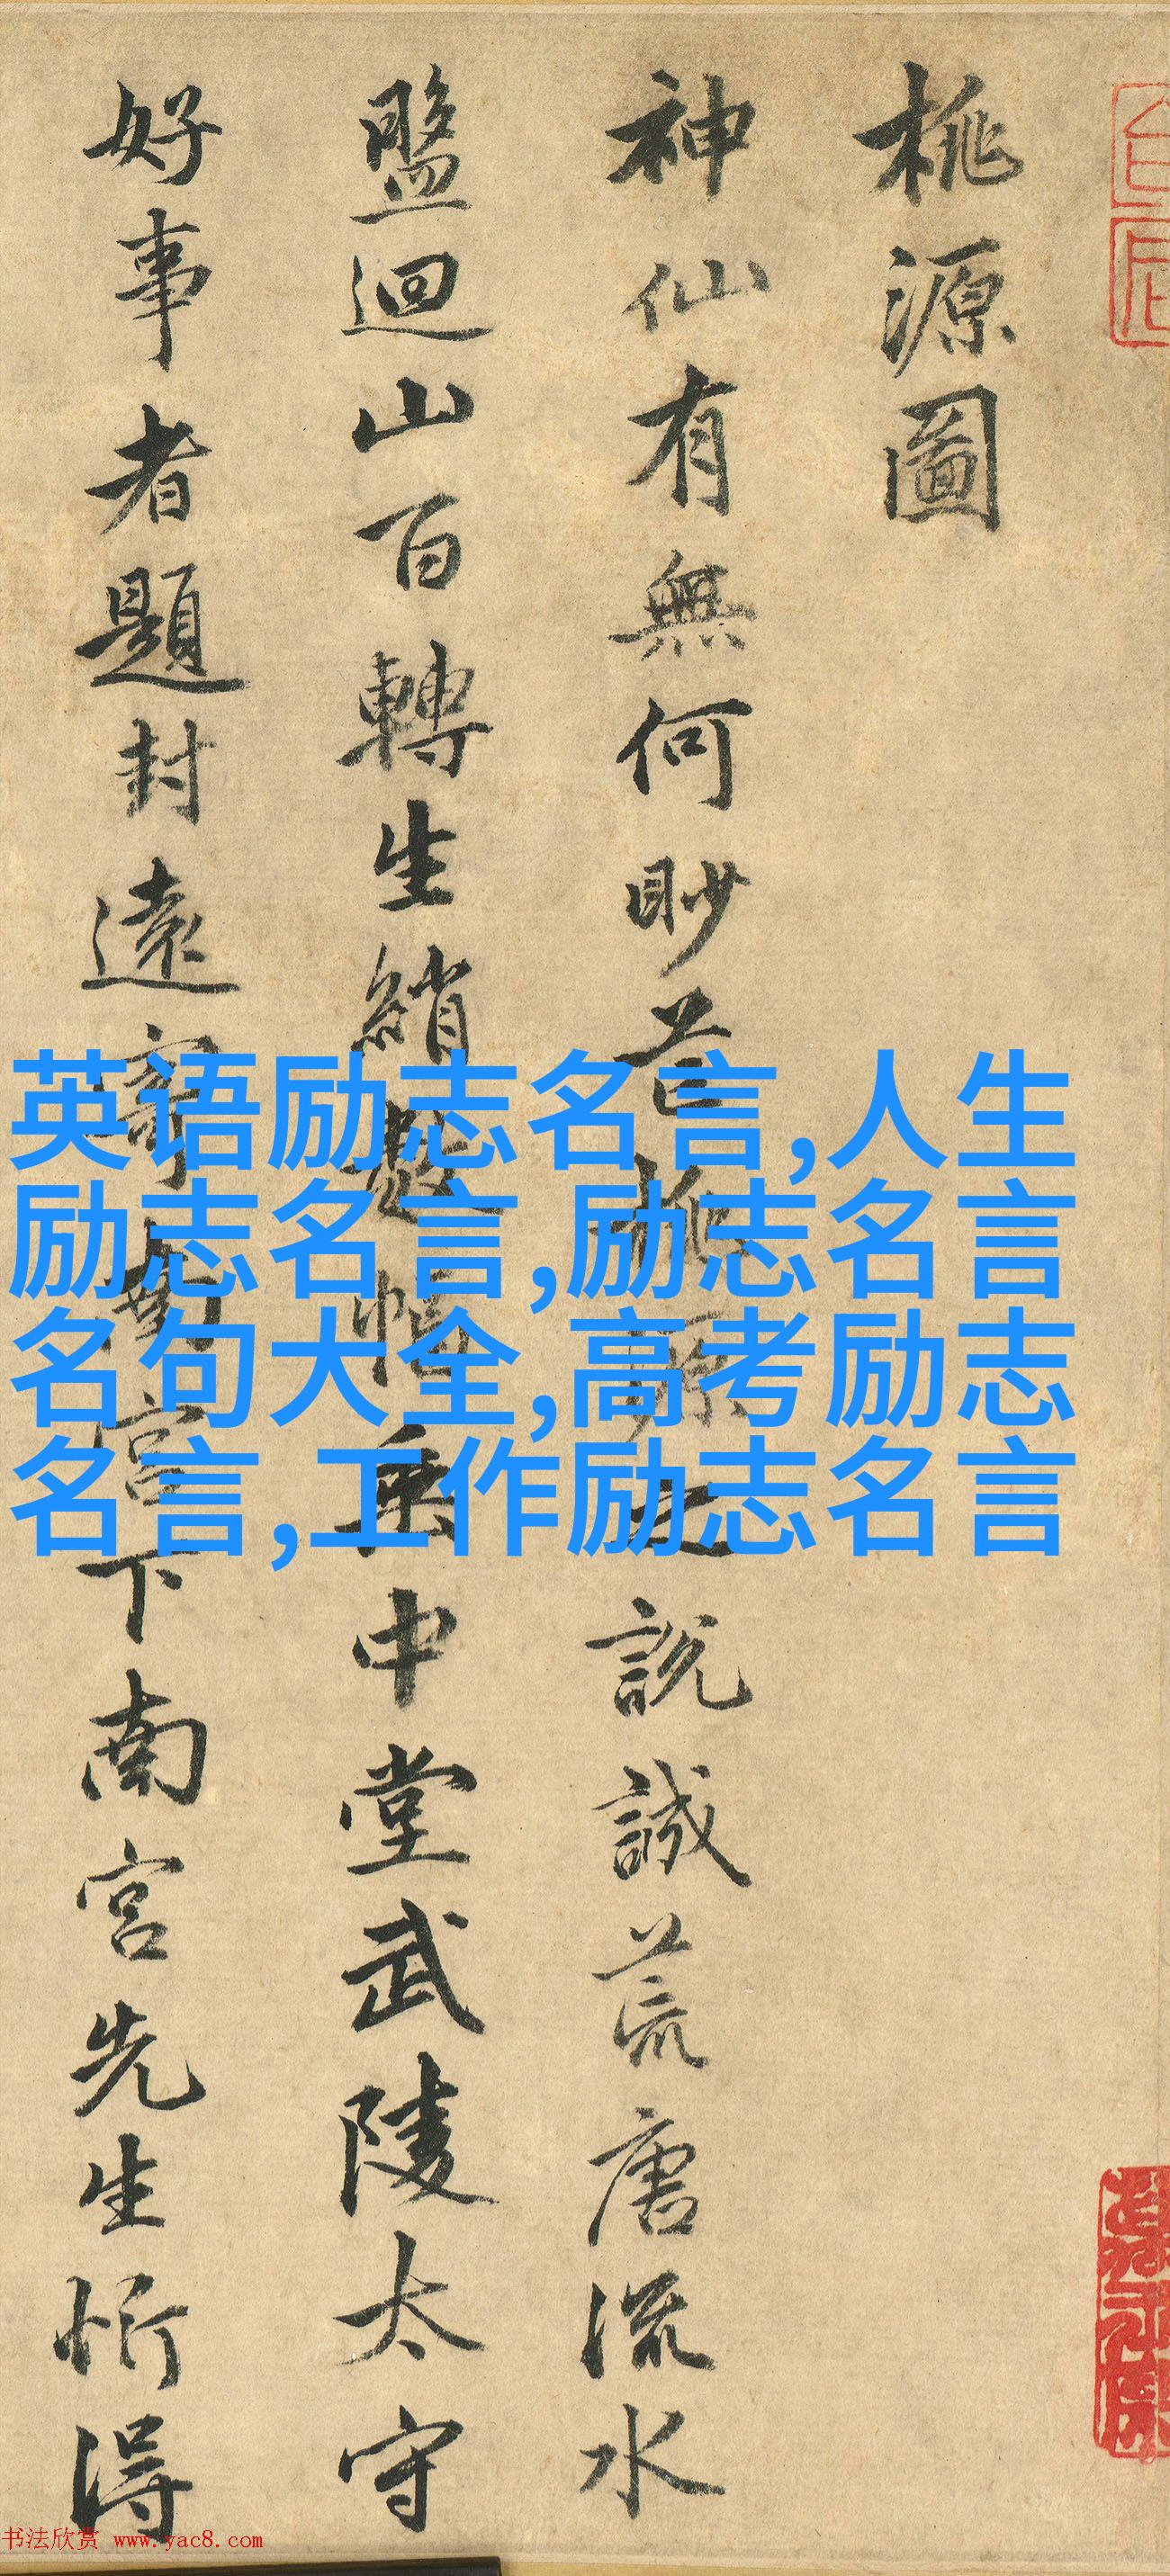 桃源圖
神仙有無何眇芒桃源之説誠荒唐流水
盤迴山百轉生綃數幅垂中堂武陵太守
好事者題封遠寄南宮下南宮先生忻得
英语励志名言,人生
励志名言,励志名言
名句大全,高考励志
名言,工作励志名言
书法欣赏 www.yac8.com